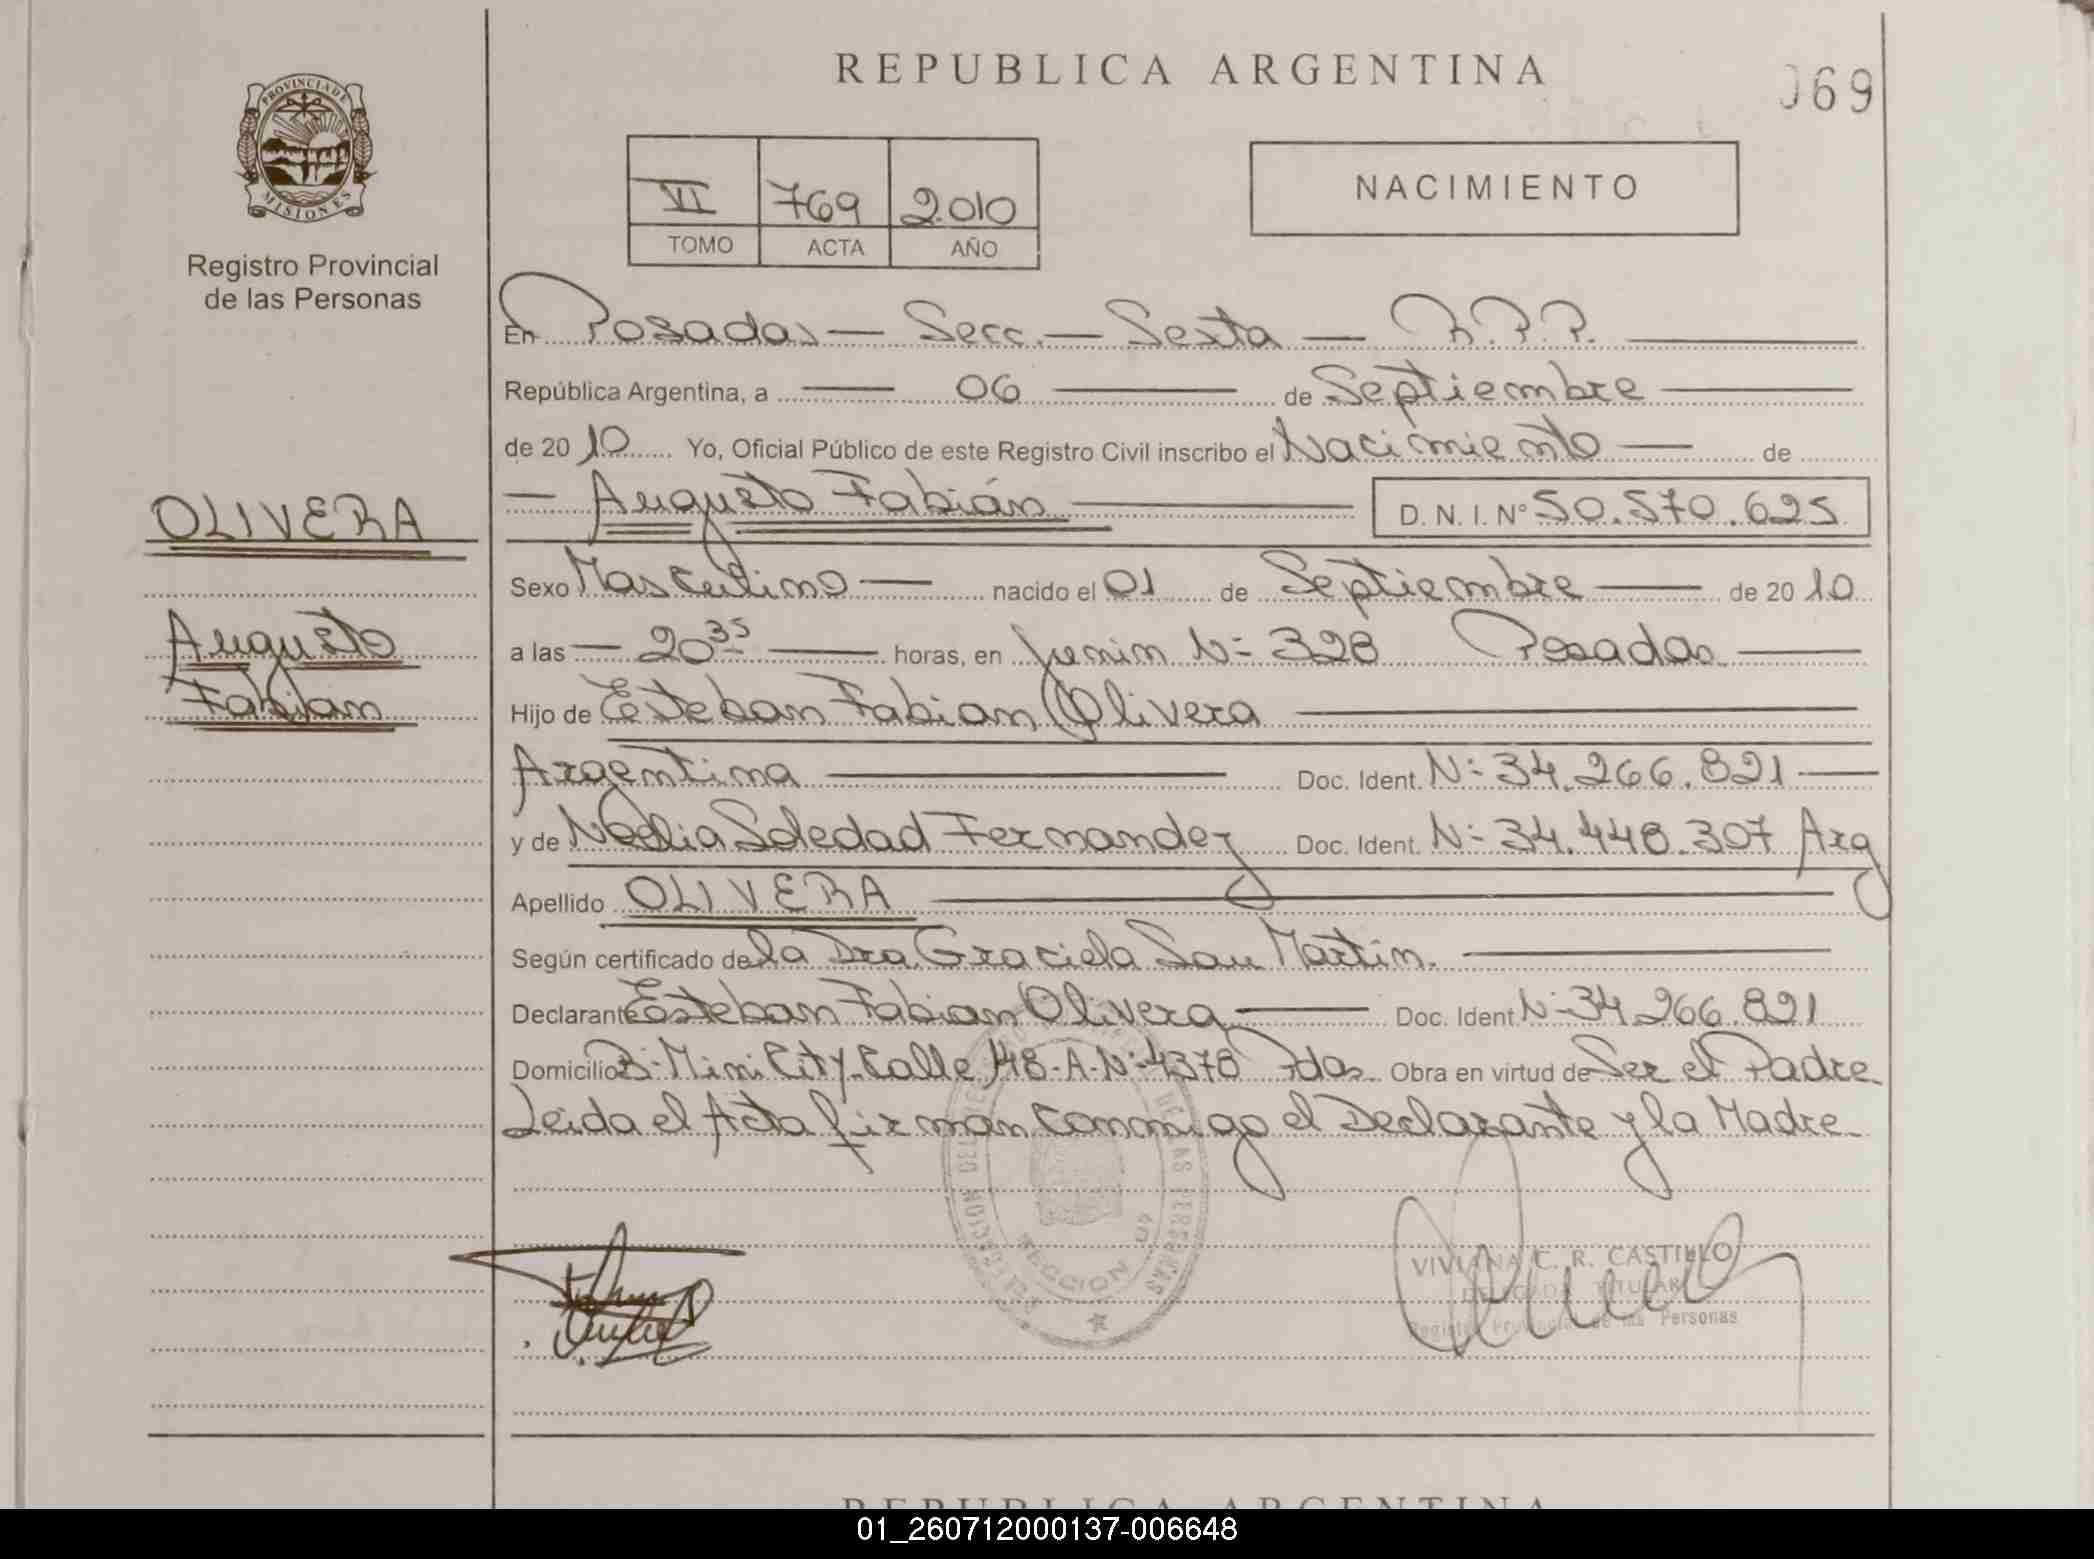 REPUBLICA ARGENTINA
069
PROVINCIA DE MISIONES
Registro Provincial
de las Personas
VI 769 2.010
TOMO ACTA AÑO
NACIMIENTO
En Posadas — Secc. — Sexta — R.P.P.
República Argentina, a — 06 — de Septiembre
de 20 10 Yo, Oficial Público de este Registro Civil inscribo el Nacimiento — de
— Augusto Fabián — D. N. I. N° 50.570.625
OLIVERA
Augusto
Fabián
Sexo Masculino — nacido el 01 de Septiembre — de 20 10
a las — 20 35 — horas, en Junin N- 328 Posadas —
Hijo de Esteban Fabian Olivera
Argentina — Doc. Ident. N- 34.266.821 —
y de Nadia Soledad Fernandez Doc. Ident. N- 34.448.307 Arg
Apellido OLIVERA
Según certificado de la Dra. Graciela San Martin.
Declarante Esteban Fabian Olivera — Doc. Ident N- 34.266.821
Domicilio B- Mini City-Calle 148-A-N- 4378 Pdas. Obra en virtud de Ser el Padre
Leida el Acta firman conmigo el Declarante y la Madre
SECCION
VIVIANA C. R. CASTILLO
DELEGADA TITULAR
Registro Provincial de las Personas
REPUBLICA ARGENTINA
01_260712000137-006648